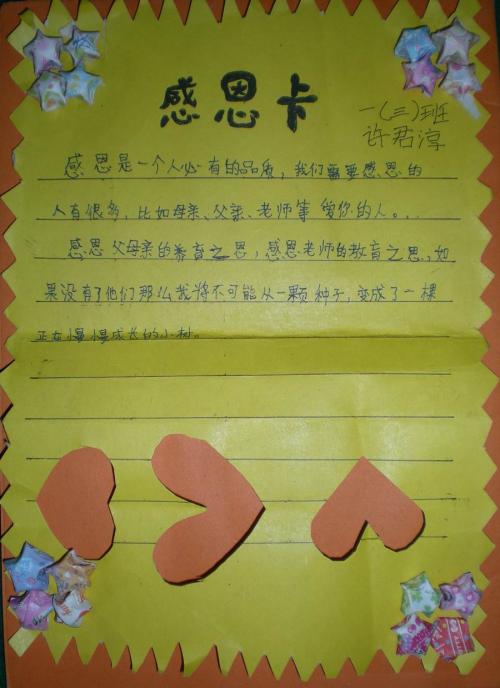 感恩卡
一(三)班
许君淳
感恩是一个人必有的品质，我们需要感恩的
人有很多，比如母亲、父亲、老师等爱你的人。..
感恩父母亲的养育之恩，感恩老师的教育之恩，如
果没有了他们那么我将不可能从一颗种子，变成了一棵
正在慢慢成长的小树。